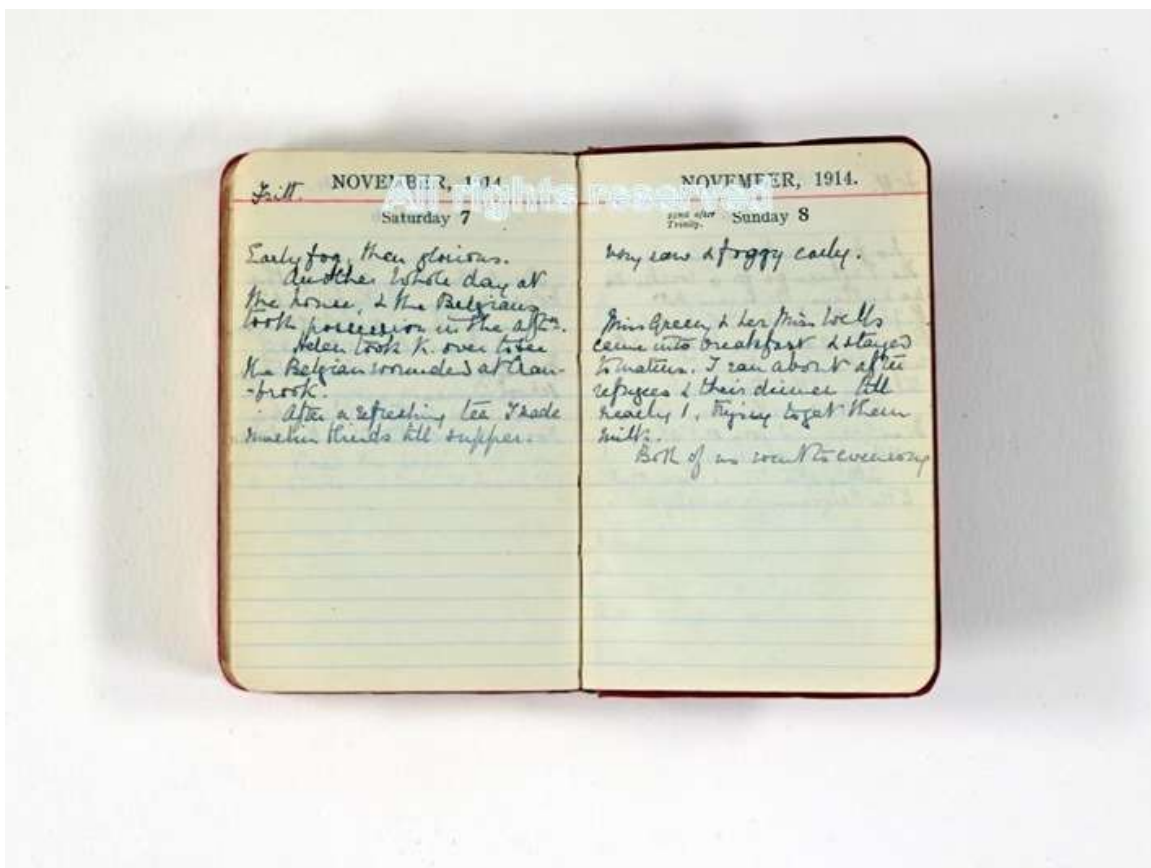 Fritt.
NOVEMBER, 1914
Saturday 7
Early fog, then glorious.
Another whole day at
the house, & the Belgians
took possession in the aftn.
Helen took K. over to see
the Belgian wounded at Cran-
-brook.
After a refreshing tea I made
muslin blinds till supper.
NOVEMBER, 1914.
22nd after
Trinity.
Sunday 8
Very raw & foggy early.
Miss Green & her Miss Wells
came into breakfast & stayed
to matins. I ran about after
refugees & their dinner till
nearly 1, trying to get them
milk.
Both of us went to evensong
All rights reserved